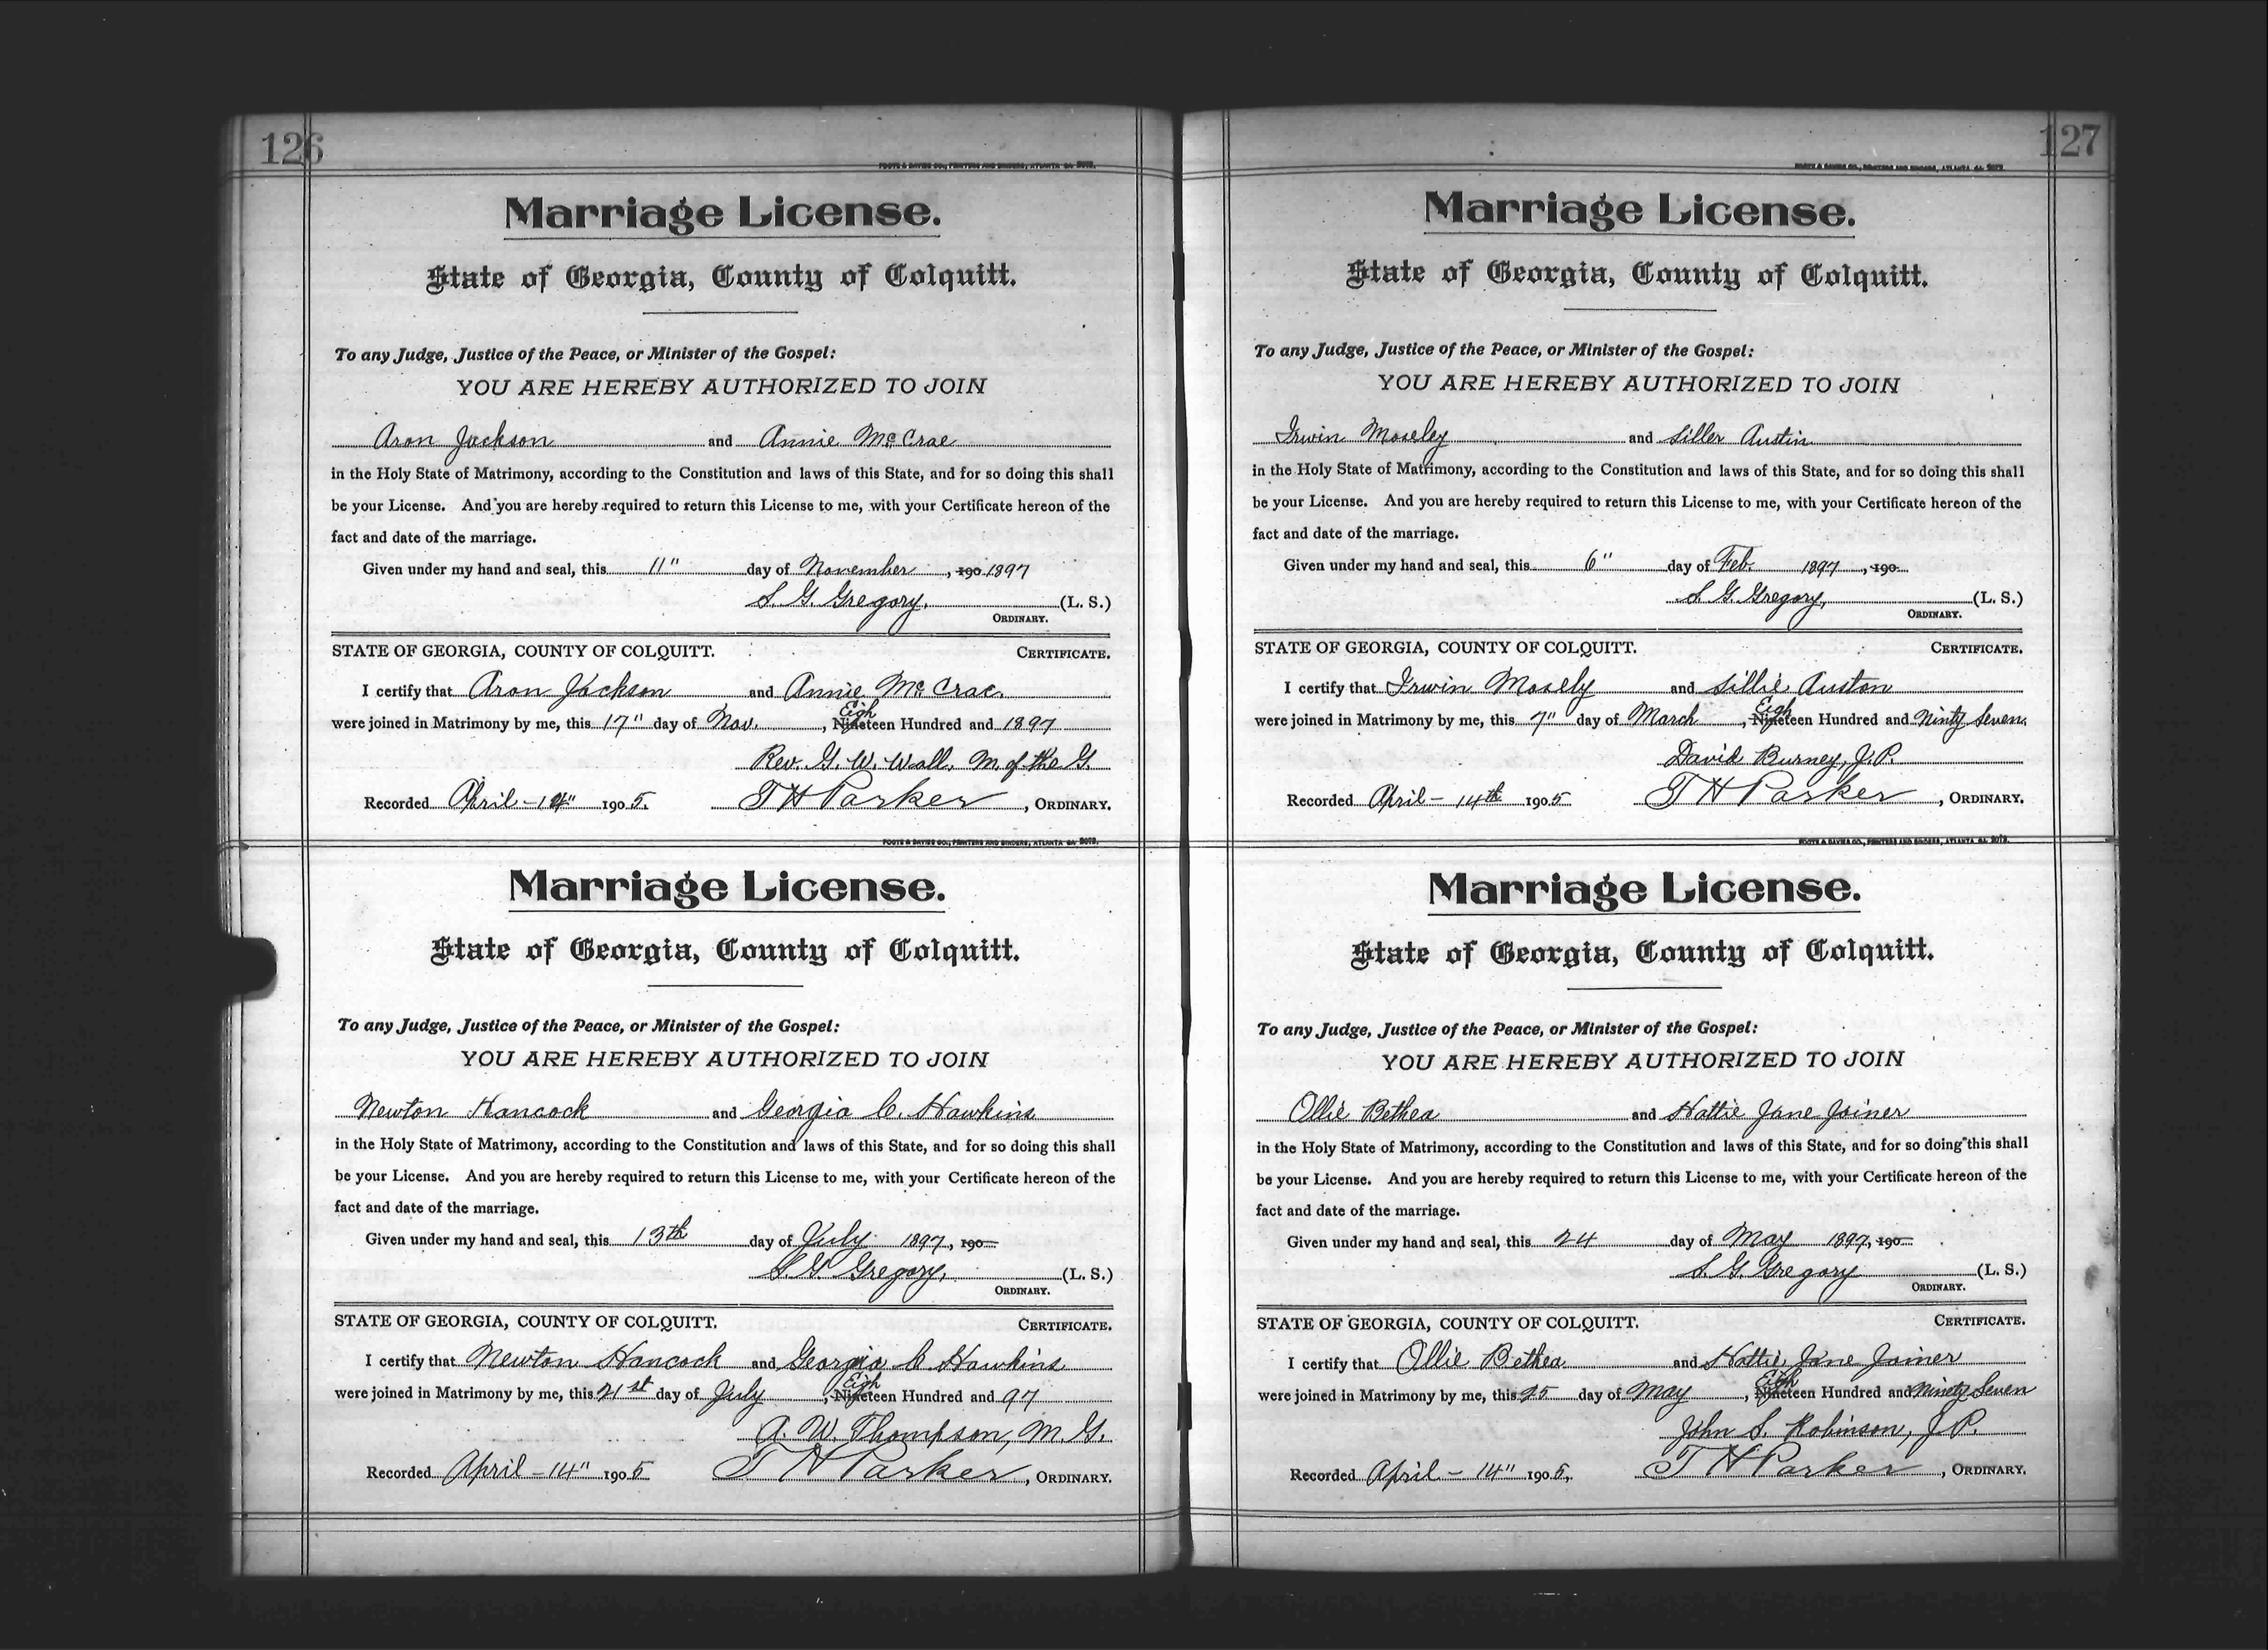 126
FOOTE & DAVIES CO., PRINTERS AND BINDERS, ATLANTA GA 2072.
Marriage License.
State of Georgia, County of Colquitt.
To any Judge, Justice of the Peace, or Minister of the Gospel:
YOU ARE HEREBY AUTHORIZED TO JOIN
Aron Jackson and Annie McCrae
in the Holy State of Matrimony, according to the Constitution and laws of this State, and for so doing this shall
be your License. And you are hereby required to return this License to me, with your Certificate hereon of the
fact and date of the marriage.
Given under my hand and seal, this 11" day of November, 190 1897
S. G. Gregory, (L. S.)
ORDINARY.
STATE OF GEORGIA, COUNTY OF COLQUITT. CERTIFICATE.
I certify that Aron Jackson and Annie McCrae.
Eigh
were joined in Matrimony by me, this 17" day of Nov., Nineteen Hundred and 1897
Rev. G. W. Wall, M. of the G.
Recorded April - 14" 1905. T H Parker, ORDINARY.
FOOTE & DAVIES CO., PRINTERS AND BINDERS, ATLANTA GA 2072.
Marriage License.
State of Georgia, County of Colquitt.
To any Judge, Justice of the Peace, or Minister of the Gospel:
YOU ARE HEREBY AUTHORIZED TO JOIN
Newton Hancock and Georgia C. Hawkins
in the Holy State of Matrimony, according to the Constitution and laws of this State, and for so doing this shall
be your License. And you are hereby required to return this License to me, with your Certificate hereon of the
fact and date of the marriage.
Given under my hand and seal, this 13th day of July 1897, 190
S. G. Gregory, (L. S.)
ORDINARY.
STATE OF GEORGIA, COUNTY OF COLQUITT. CERTIFICATE.
I certify that Newton Hancock and Georgia C Hawkins
Eigh
were joined in Matrimony by me, this 21st day of July, Nineteen Hundred and 97
A. W. Thompson, M. G.
Recorded April - 14" 1905 T H Parker, ORDINARY.
127
FOOTE & DAVIES CO., PRINTERS AND BINDERS, ATLANTA GA 2072
Marriage License.
State of Georgia, County of Colquitt.
To any Judge, Justice of the Peace, or Minister of the Gospel:
YOU ARE HEREBY AUTHORIZED TO JOIN
Irwin Moseley and Siller Austin
in the Holy State of Matrimony, according to the Constitution and laws of this State, and for so doing this shall
be your License. And you are hereby required to return this License to me, with your Certificate hereon of the
fact and date of the marriage.
Given under my hand and seal, this 6" day of Feb. 1897, 190
S. G. Gregory, (L. S.)
ORDINARY.
STATE OF GEORGIA, COUNTY OF COLQUITT. CERTIFICATE.
I certify that Irwin Mosely and Sillie Auston
Eigh
were joined in Matrimony by me, this 7" day of March, Nineteen Hundred and Ninty Seven.
David Burney, J. P.
Recorded April - 14th 1905 T H Parker, ORDINARY.
FOOTE & DAVIES CO., PRINTERS AND BINDERS, ATLANTA GA 2072.
Marriage License.
State of Georgia, County of Colquitt.
To any Judge, Justice of the Peace, or Minister of the Gospel:
YOU ARE HEREBY AUTHORIZED TO JOIN
Ollie Bethea and Hattie Jane Joiner
in the Holy State of Matrimony, according to the Constitution and laws of this State, and for so doing this shall
be your License. And you are hereby required to return this License to me, with your Certificate hereon of the
fact and date of the marriage.
Given under my hand and seal, this 24 day of May 1897, 190
S. G. Gregory (L. S.)
ORDINARY.
STATE OF GEORGIA, COUNTY OF COLQUITT. CERTIFICATE.
I certify that Ollie Bethea and Hattie Jane Joiner
Eigh
were joined in Matrimony by me, this 25 day of May, Nineteen Hundred and Ninety Seven
John S. Robinson, J. P.
Recorded April - 14" 1905. T H Parker, ORDINARY.